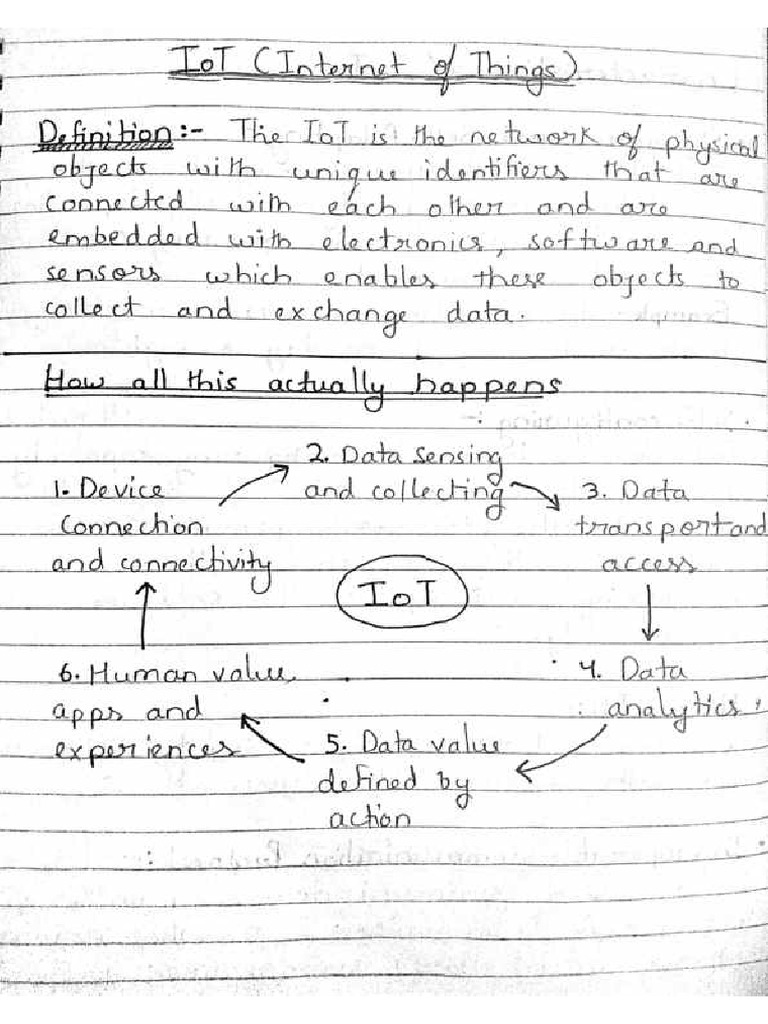 IoT (Internet of Things)
Definition:- The IoT is the network of physical
objects with unique identifiers that are
connected with each other and are
embedded with electronics, software and
sensors which enables these objects to
collect and exchange data.
How all this actually happens
1. Device
Connection
and connectivity
2. Data sensing
and collecting
3. Data
transport and
access
4. Data
analytics
5. Data value
defined by
action
6. Human value
apps and
experiences
IoT